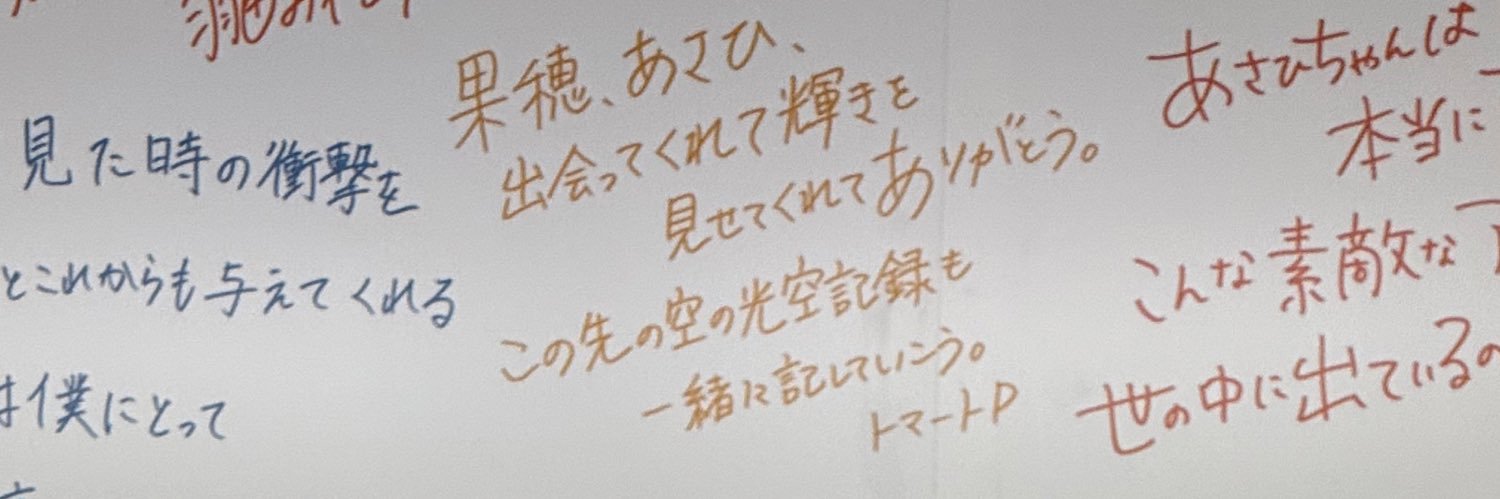 見た時の衝撃を
とこれからも与えてくれる
は僕にとって
果穂、あさひ、
出会ってくれて輝きを
見せてくれてありがとう。
この先の空の光空記録も
一緒に記していこう。
トマートP
あさひちゃんは
本当に
こんな素敵な
世の中に出ているの